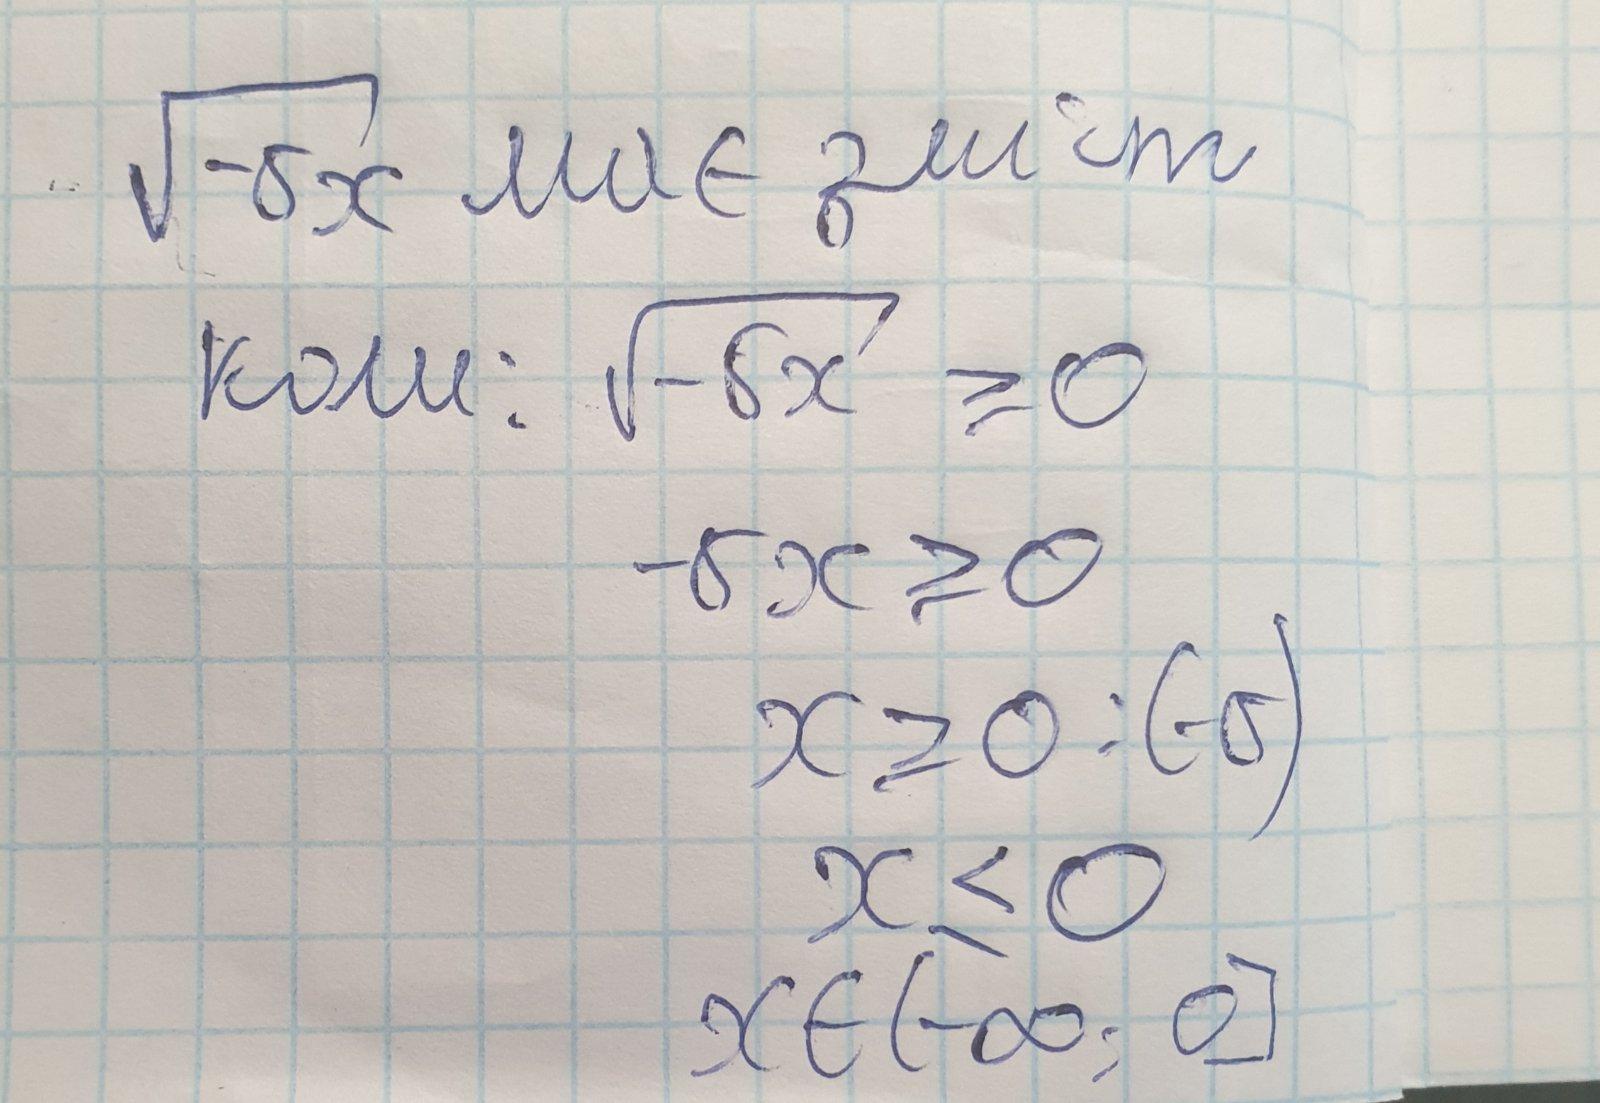 √-5x має зміст
коли: √-5x ≥ 0
-5x ≥ 0
x ≥ 0 : (-5)
x ≤ 0
x ∈ (-∞; 0]